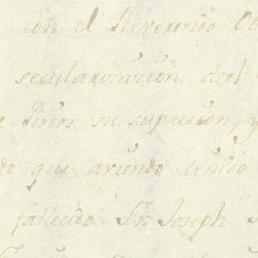 con el Reverendo Ob
secularización del
Pinos su supresion, y
do que aviendo tenido
fallecido Fr. Joseph